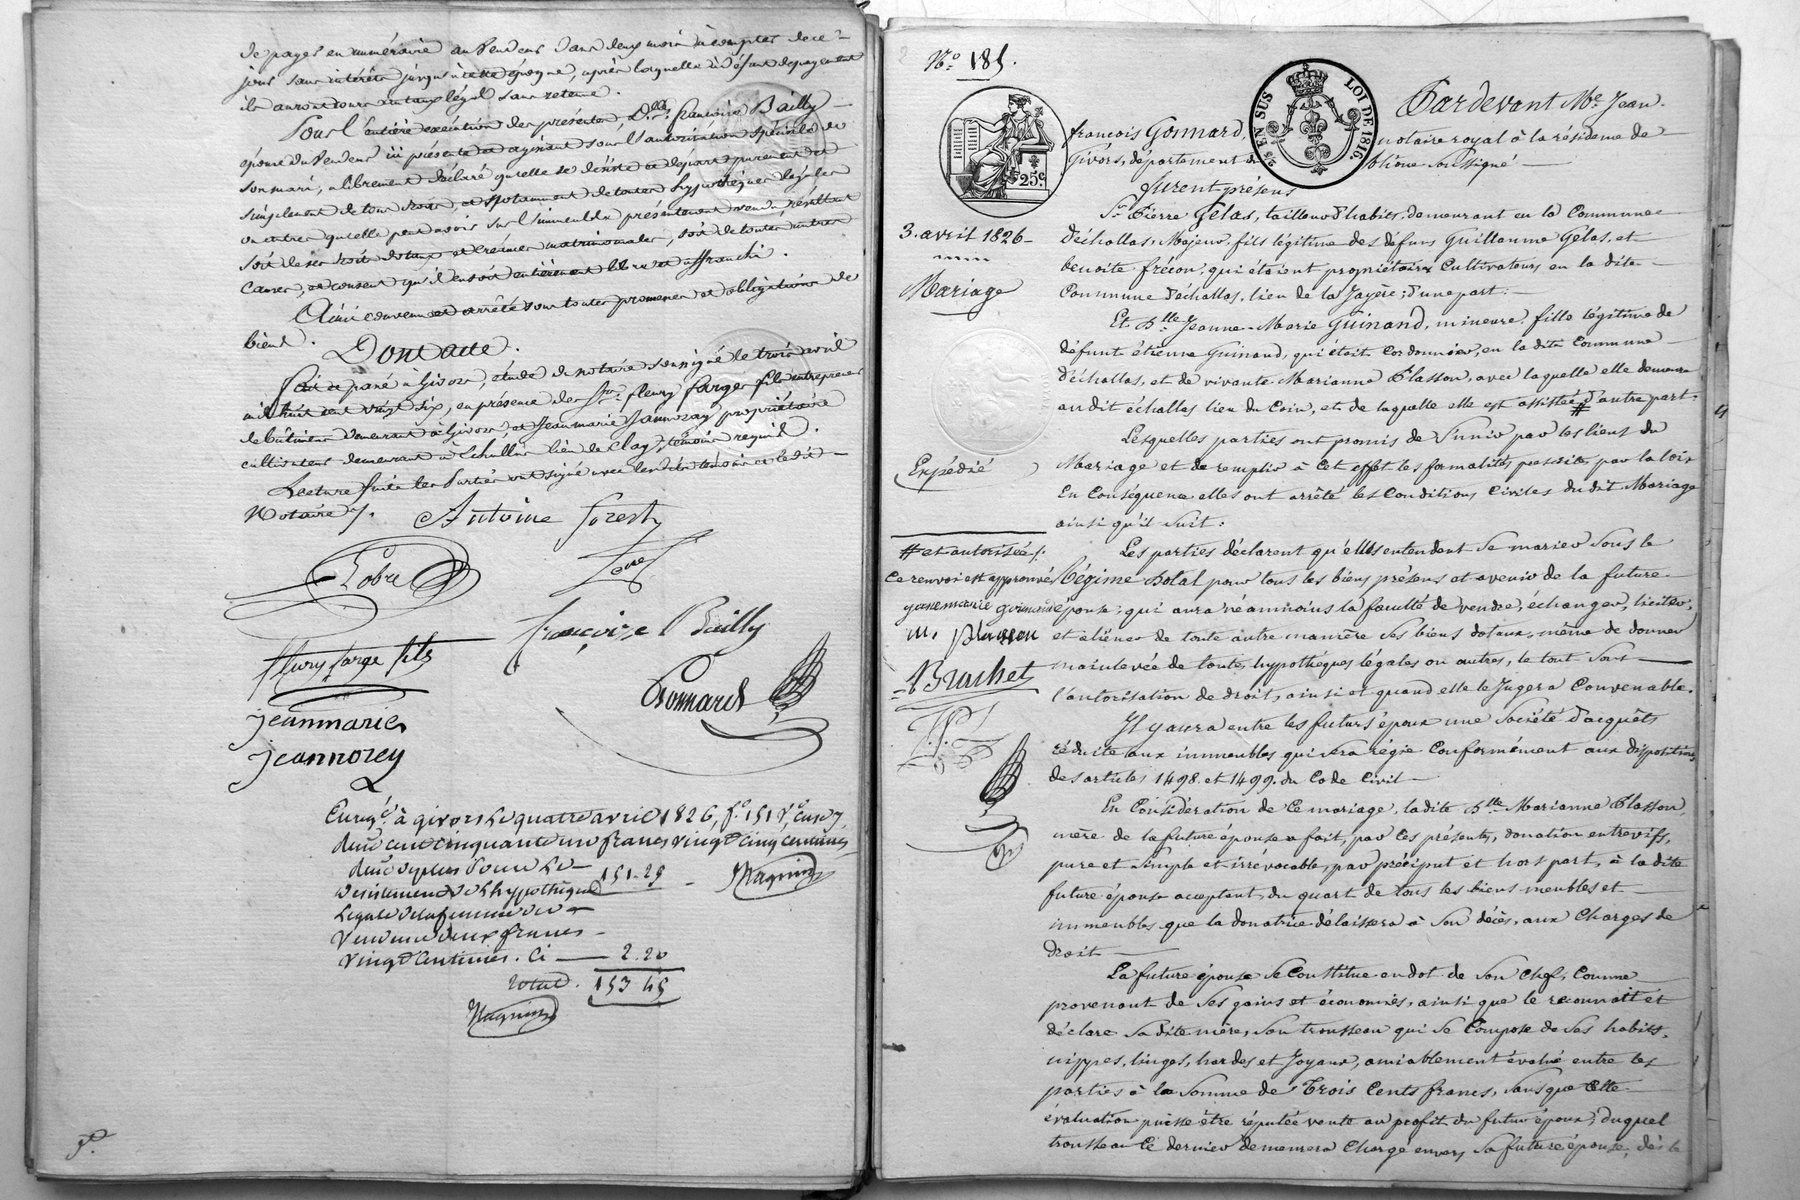 de payer en numéraire au vendeur dans deux mois à compter de ce
jour sans intérêts jusqu'à cette époque, après laquelle à défaut de payement
ils auront cours au taux légal sans retenue.
Pour l'entière exécution des présentes, D.lle françoise Bailly
épouse du vendeur ici présente et agissant sous l'autorisation spéciale de
son mari, a librement déclaré qu'elle se désiste et départ purement et
simplement de tous droits, et notamment de toutes hypothèques légales
ou autres qu'elle peut avoir sur l'immeuble présentement vendu résultant
soit de ses droits dotaux et créances matrimoniales, soit de toutes autres
causes, et consent qu'il en soit entièrement libre et affranchi.
Ainsi convenu et arrêté sous toutes promesses et obligations de
biens.
Dont acte.
fait et passé à Givors, étude du notaire soussigné le trois avril
mil huit cent vingt six, en présence des Srs. fleury farge fils entrepreneur
de bâtiment demeurant à Givors et Jean marie Jannoray propriétaire
cultivateur demeurant à Echallas lieu de témoins requis.
Lecture faite les parties ont signé avec les dits témoins et le dit
Notaire ./.
Antoine foresty
Lobre
françoise Bailly
fleury farge fils
Gonnard
jeanmarie
jeannorey
Enreg.é à givors le quatre avril 1826, f.o 151 v.o case 7
deux cent cinquante un francs vingt cinq centimes
151.25
désistement de l'hypothèque
légale de la femme du
vendeur deux francs
vingt centimes. Ci — 2.20
total. 153 45
Magnin
Magnin
N.o 185.
25c
EN SUS LOI DE 1816
Pardevant Me. Jean
françois Gonnard, notaire royal à la résidence de
Givors, département du Rhône soussigné
furent présens
3. avril 1826
Mariage
Sr. Pierre Gelas, tailleur d'habits, demeurant en la Commune
d'échallas, Majeur, fils légitime des défunts Guillaume Gelas, et
benoite frécon, qui étaient propriétaires Cultivateurs en la dite
Commune d'échallas, lieu de la Jayère; d'une part:
Et D.lle Jeanne-Marie Guinand, mineure, fille légitime de
défunt étienne Guinand, qui était Cordonnier, en la dite Commune
d'échallas, et de vivante Marianne Plasson, avec laquelle elle demeure
au dit échallas lieu du Coin, et de laquelle elle est assistée # d'autre part.
Lesquelles parties ont promis de s'unir par les liens du
Mariage et de remplir à cet effet les formalités prescrites par la loi.
Expédié
En Conséquence elles ont arrêté les Conditions Civiles du dit Mariage
ainsi qu'il suit:
# et autorisée ./.
ce renvoi est approuvé
m. plasson
Brachet
Les parties déclarent qu'elles entendent se marier sous le
Régime Dotal pour tous les biens présens et avenir de la future
épouse; qui aura néanmoins la faculté de vendre, échanger, liciter,
et aliéner de toute autre manière ses biens dotaux, même de donner
mainlevée de toutes hypothèques légales ou autres, le tout sous
l'autorisation de droit, ainsi et quand elle le Jugera Convenable.
Il y aura entre les futurs époux une Société d'acquêts
réduite aux immeubles qui sera régie Conformément aux dispositions
des articles 1498. et 1499. du Code Civil
En Considération de ce mariage, la dite D.lle Marianne Plasson,
mère de la future épouse a fait, par ces présentes, donation entrevifs,
pure et simple et irrévocable, par préciput et hors part, à la dite
future épouse acceptant, du quart de tous les biens meubles et
immeubles que la donatrice délaissera à son décès, aux Charges de
droit
La future épouse se Constitue en dot de son Chef, Comme
provenant de ses gains et économies, ainsi que le reconnait et
déclare sa dite mère, son trousseau qui se Compose de ses habits,
nippes, linges, hardes et Joyaux, amiablement évalué entre les
parties à la Somme de Trois Cents francs, sans que Cette
évaluation puisse être réputée vente au profit du futur époux, duquel
trousseau Ce dernier demeurera Chargé envers sa future épouse, dès le